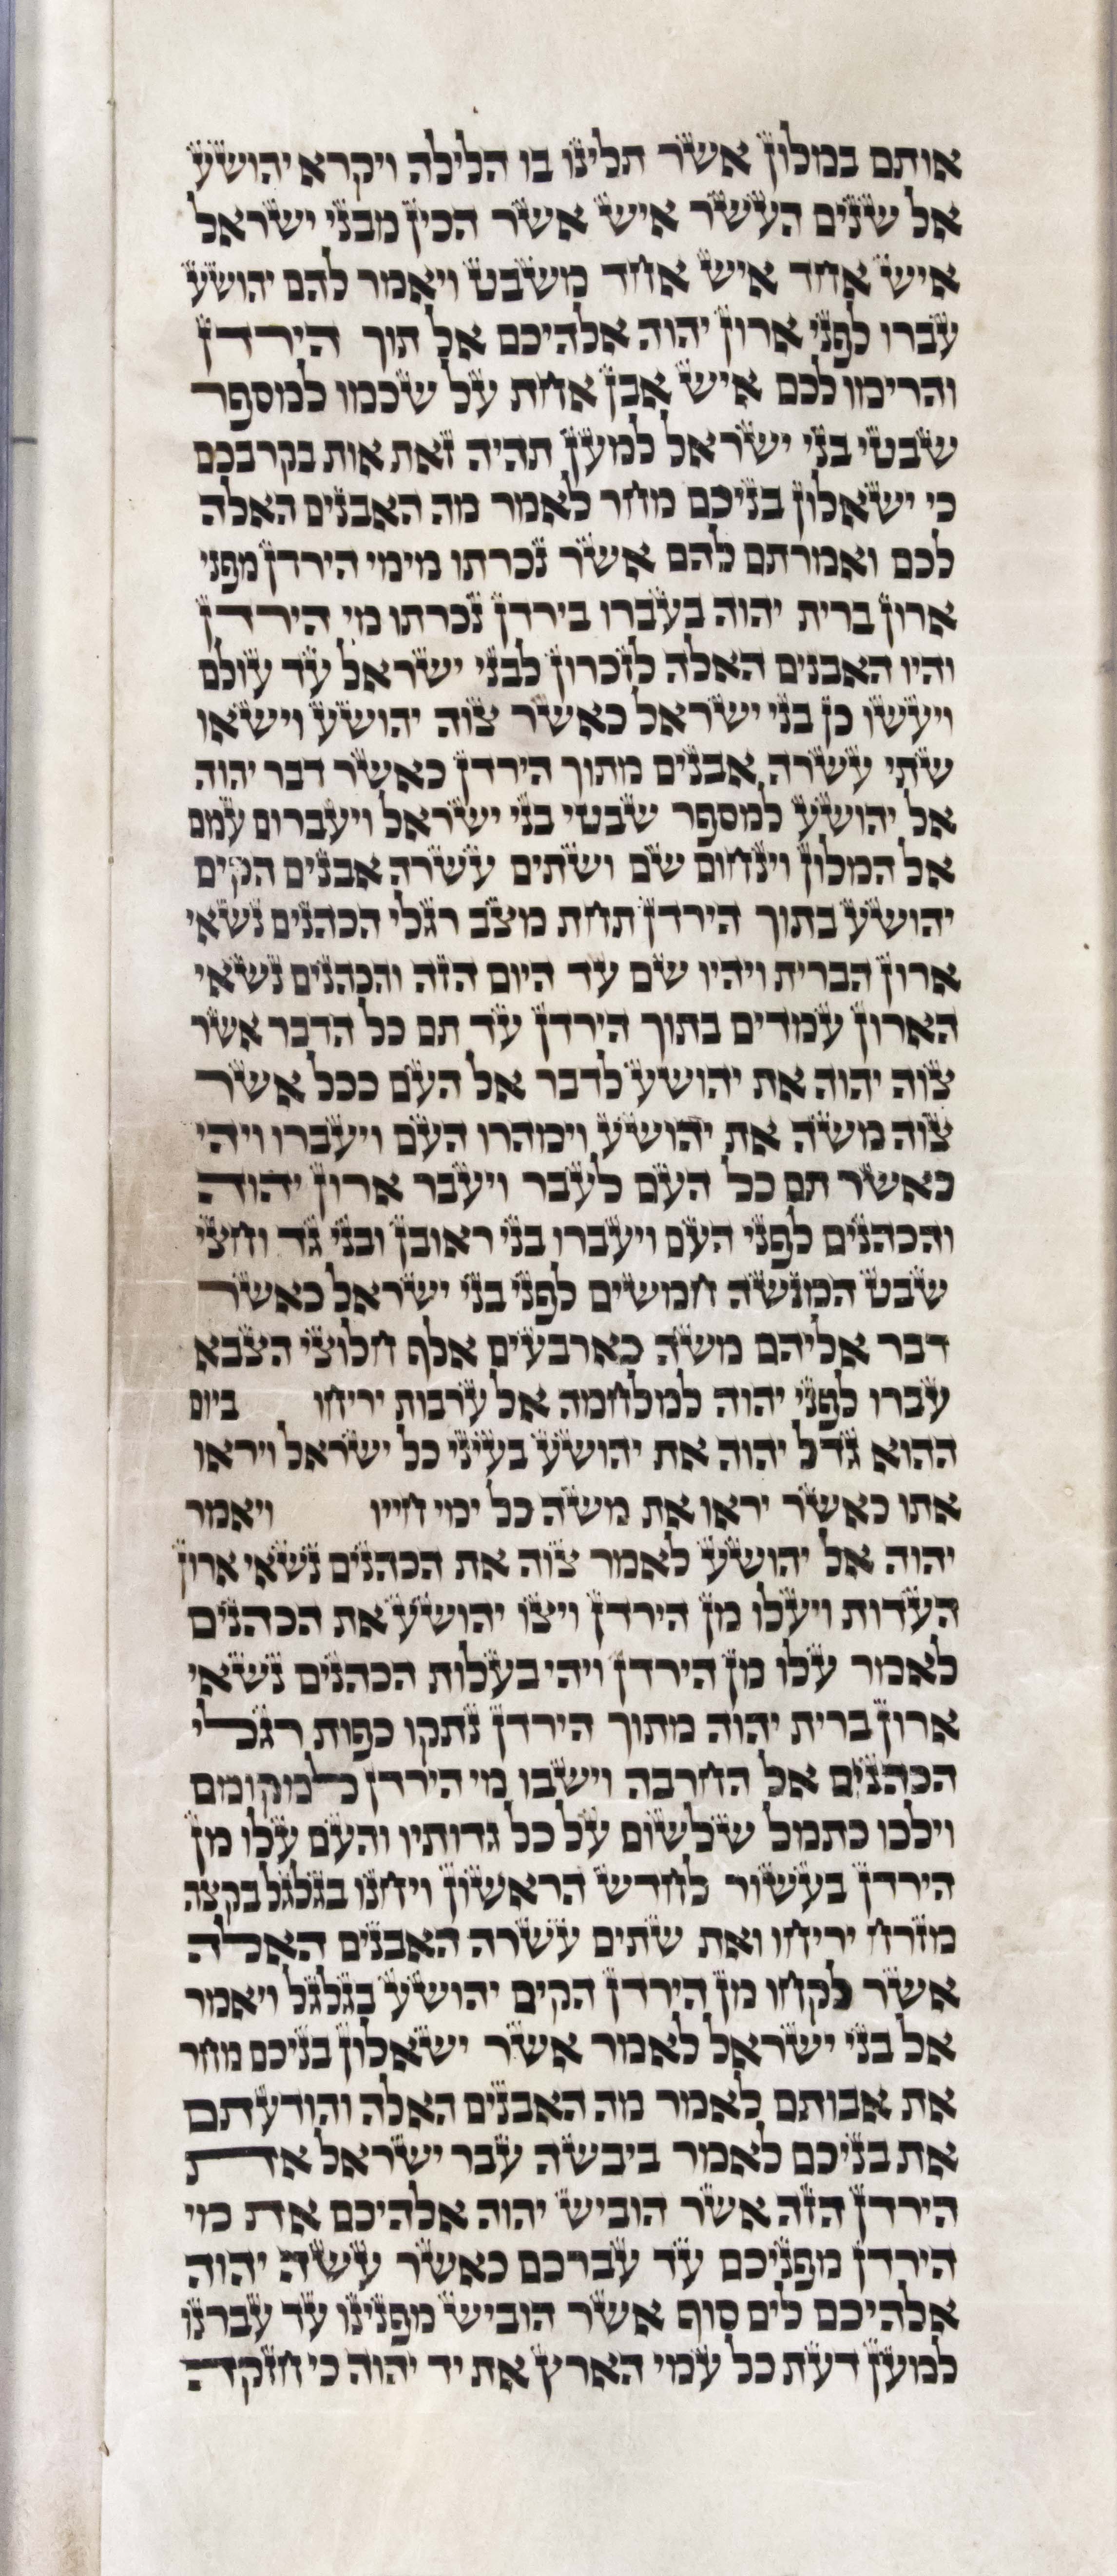 אותם במלון אשר תלינו בו הלילה ויקרא יהושע
אל שנים העשר איש אשר הכין מבני ישראל
איש אחד איש אחד משבט ויאמר להם יהושע
עברו לפני ארון יהוה אלהיכם אל תוך הירדן
והרימו לכם איש אבן אחת על שכמו למספר
שבטי בני ישראל למען תהיה זאת אות בקרבכם
כי ישאלון בניכם מחר לאמר מה האבנים האלה
לכם ואמרתם להם אשר נכרתו מימי הירדן מפני
ארון ברית יהוה בעברו בירדן נכרתו מי הירדן
והיו האבנים האלה לזכרון לבני ישראל עד עולם
ויעשו כן בני ישראל כאשר צוה יהושע וישאו
שתי עשרה אבנים מתוך הירדן כאשר דבר יהוה
אל יהושע למספר שבטי בני ישראל ויעברום עמם
אל המלון וינחום שם ושתים עשרה אבנים הקים
יהושע בתוך הירדן תחת מצב רגלי הכהנים נשאי
ארון הברית ויהיו שם עד היום הזה והכהנים נשאי
הארון עמדים בתוך הירדן עד תם כל הדבר אשר
צוה יהוה את יהושע לדבר אל העם ככל אשר
צוה משה את יהושע וימהרו העם ויעברו ויהי
כאשר תם כל העם לעבר ויעבר ארון יהוה
והכהנים לפני העם ויעברו בני ראובן ובני גד וחצי
שבט המנשה חמשים לפני בני ישראל כאשר
דבר אליהם משה כארבעים אלף חלוצי הצבא
עברו לפני יהוה למלחמה אל ערבות יריחו ביום
ההוא גדל יהוה את יהושע בעיני כל ישראל ויראו
אתו כאשר יראו את משה כל ימי חייו ויאמר
יהוה אל יהושע לאמר צוה את הכהנים נשאי ארון
העדות ויעלו מן הירדן ויצו יהושע את הכהנים
לאמר עלו מן הירדן ויהי בעלות הכהנים נשאי
ארון ברית יהוה מתוך הירדן נתקו כפות רגלי
הכהנים אל החרבה וישבו מי הירדן למקומם
וילכו כתמל שלשום על כל גדותיו והעם עלו מן
הירדן בעשור לחדש הראשון ויחנו בגלגל בקצה
מזרח יריחו ואת שתים עשרה האבנים האלה
אשר לקחו מן הירדן הקים יהושע בגלגל ויאמר
אל בני ישראל לאמר אשר ישאלון בניכם מחר
את אבותם לאמר מה האבנים האלה והודעתם
את בניכם לאמר ביבשה עבר ישראל את
הירדן הזה אשר הוביש יהוה אלהיכם את מי
הירדן מפניכם עד עברכם כאשר עשה יהוה
אלהיכם לים סוף אשר הוביש מפנינו עד עברנו
למען דעת כל עמי הארץ את יד יהוה כי חזקה